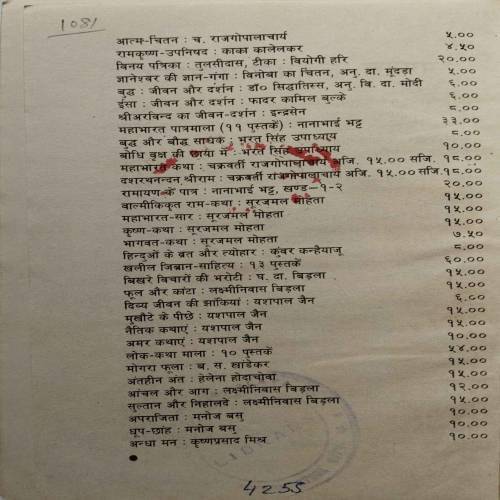 1081
आत्म-चिंतन : च. राजगोपालाचार्य ५.००
रामकृष्ण-उपनिषद : काका कालेलकर ४.५०
विनय पत्रिका : तुलसीदास, टीका : वियोगी हरि २०.००
ज्ञानेश्वर की ज्ञान-गंगा : विनोबा का चिंतन, अनु. दा. मूंदड़ा ५.००
बुद्ध : जीवन और दर्शन : डॉ० सिद्धातिस्स, अनु. वि. दा. मोदी ६.००
ईसा : जीवन और दर्शन : फादर कामिल बुल्के ६.००
श्रीअरविन्द का जीवन-दर्शन : इन्द्रसेन ८.००
महाभारत पात्रमाला (११ पुस्तकें) : नानाभाई भट्ट ३३.००
बुद्ध और बौद्ध साधक : भरत सिंह उपाध्याय ८.००
बोधि वृक्ष की छाया में : भरत सिंह उपाध्याय १०.००
महाभारत कथा : चक्रवर्ती राजगोपालाचार्य अजि. १५.०० सजि. १८.००
दशरथनन्दन श्रीराम : चक्रवर्ती राजगोपालाचार्य अजि. १५.०० सजि.१८.००
रामायण के पात्र : नानाभाई भट्ट, खण्ड—१-२ २०.००
वाल्मीकिकृत राम-कथा : सूरजमल मोहता १५.००
महाभारत-सार : सूरजमल मोहता १५.००
कृष्ण-कथा : सूरजमल मोहता १५.००
भागवत-कथा : सूरजमल मोहता ७.५०
हिन्दुओं के व्रत और त्योहार : कुंवर कन्हैयाजू ८.००
खलील जिब्रान-साहित्य : १३ पुस्तकें ६०.००
बिखरे विचारों की भरोटी : घ. दा. बिड़ला १५.००
फूल और कांटा : लक्ष्मीनिवास बिड़ला १५.००
दिव्य जीवन की झांकियां : यशपाल जैन ६.००
मुखौटे के पीछे : यशपाल जैन १५.००
नैतिक कथाएं : यशपाल जैन १५.००
अमर कथाएं : यशपाल जैन १०.००
लोक-कथा माला : १० पुस्तकें ५४.००
मोगरा फूला : ब. स. खांडेकर १५.००
अंतहीन अंत : हेलेना होदाचोवा १५.००
आंचल और आग : लक्ष्मीनिवास बिड़ला १२.००
सुल्तान और निहालदे : लक्ष्मीनिवास बिड़ला १५.००
अपराजिता : मनोज बसु १०.००
धूप-छांह : मनोज बसु १०.००
अन्धा मन : कृष्णप्रसाद मिश्र १०.००
4255